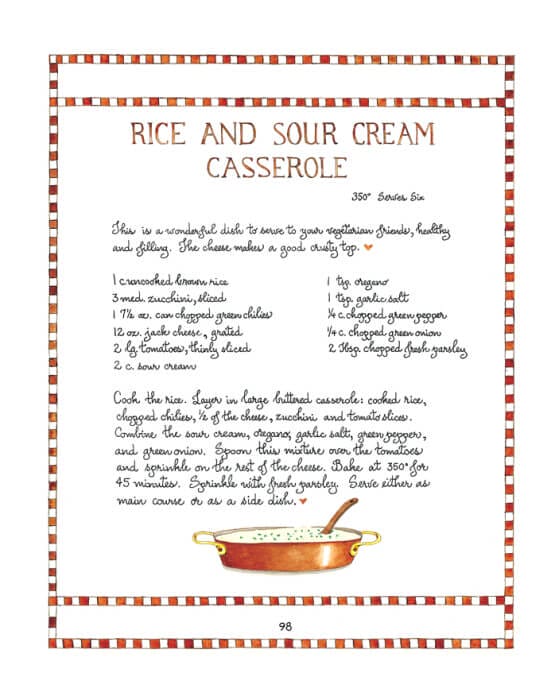 RICE AND SOUR CREAM
CASSEROLE
350° Serves Six
This is a wonderful dish to serve to your vegetarian friends, healthy
and filling. The cheese makes a good crusty top.
1 c uncooked brown rice
3 med. zucchini, sliced
1 7½ oz. can chopped green chilies
12 oz. jack cheese, grated
2 lg. tomatoes, thinly sliced
2 c. sour cream
1 tsp. oregano
1 tsp. garlic salt
¼ c. chopped green pepper
¼ c. chopped green onion
2 tbsp. chopped fresh parsley
Cook the rice. Layer in large buttered casserole: cooked rice,
chopped chilies, ½ of the cheese, zucchini and tomato slices.
Combine the sour cream, oregano, garlic salt, green pepper,
and green onion. Spoon this mixture over the tomatoes
and sprinkle on the rest of the cheese. Bake at 350° for
45 minutes. Sprinkle with fresh parsley. Serve either as
main course or as a side dish.
98